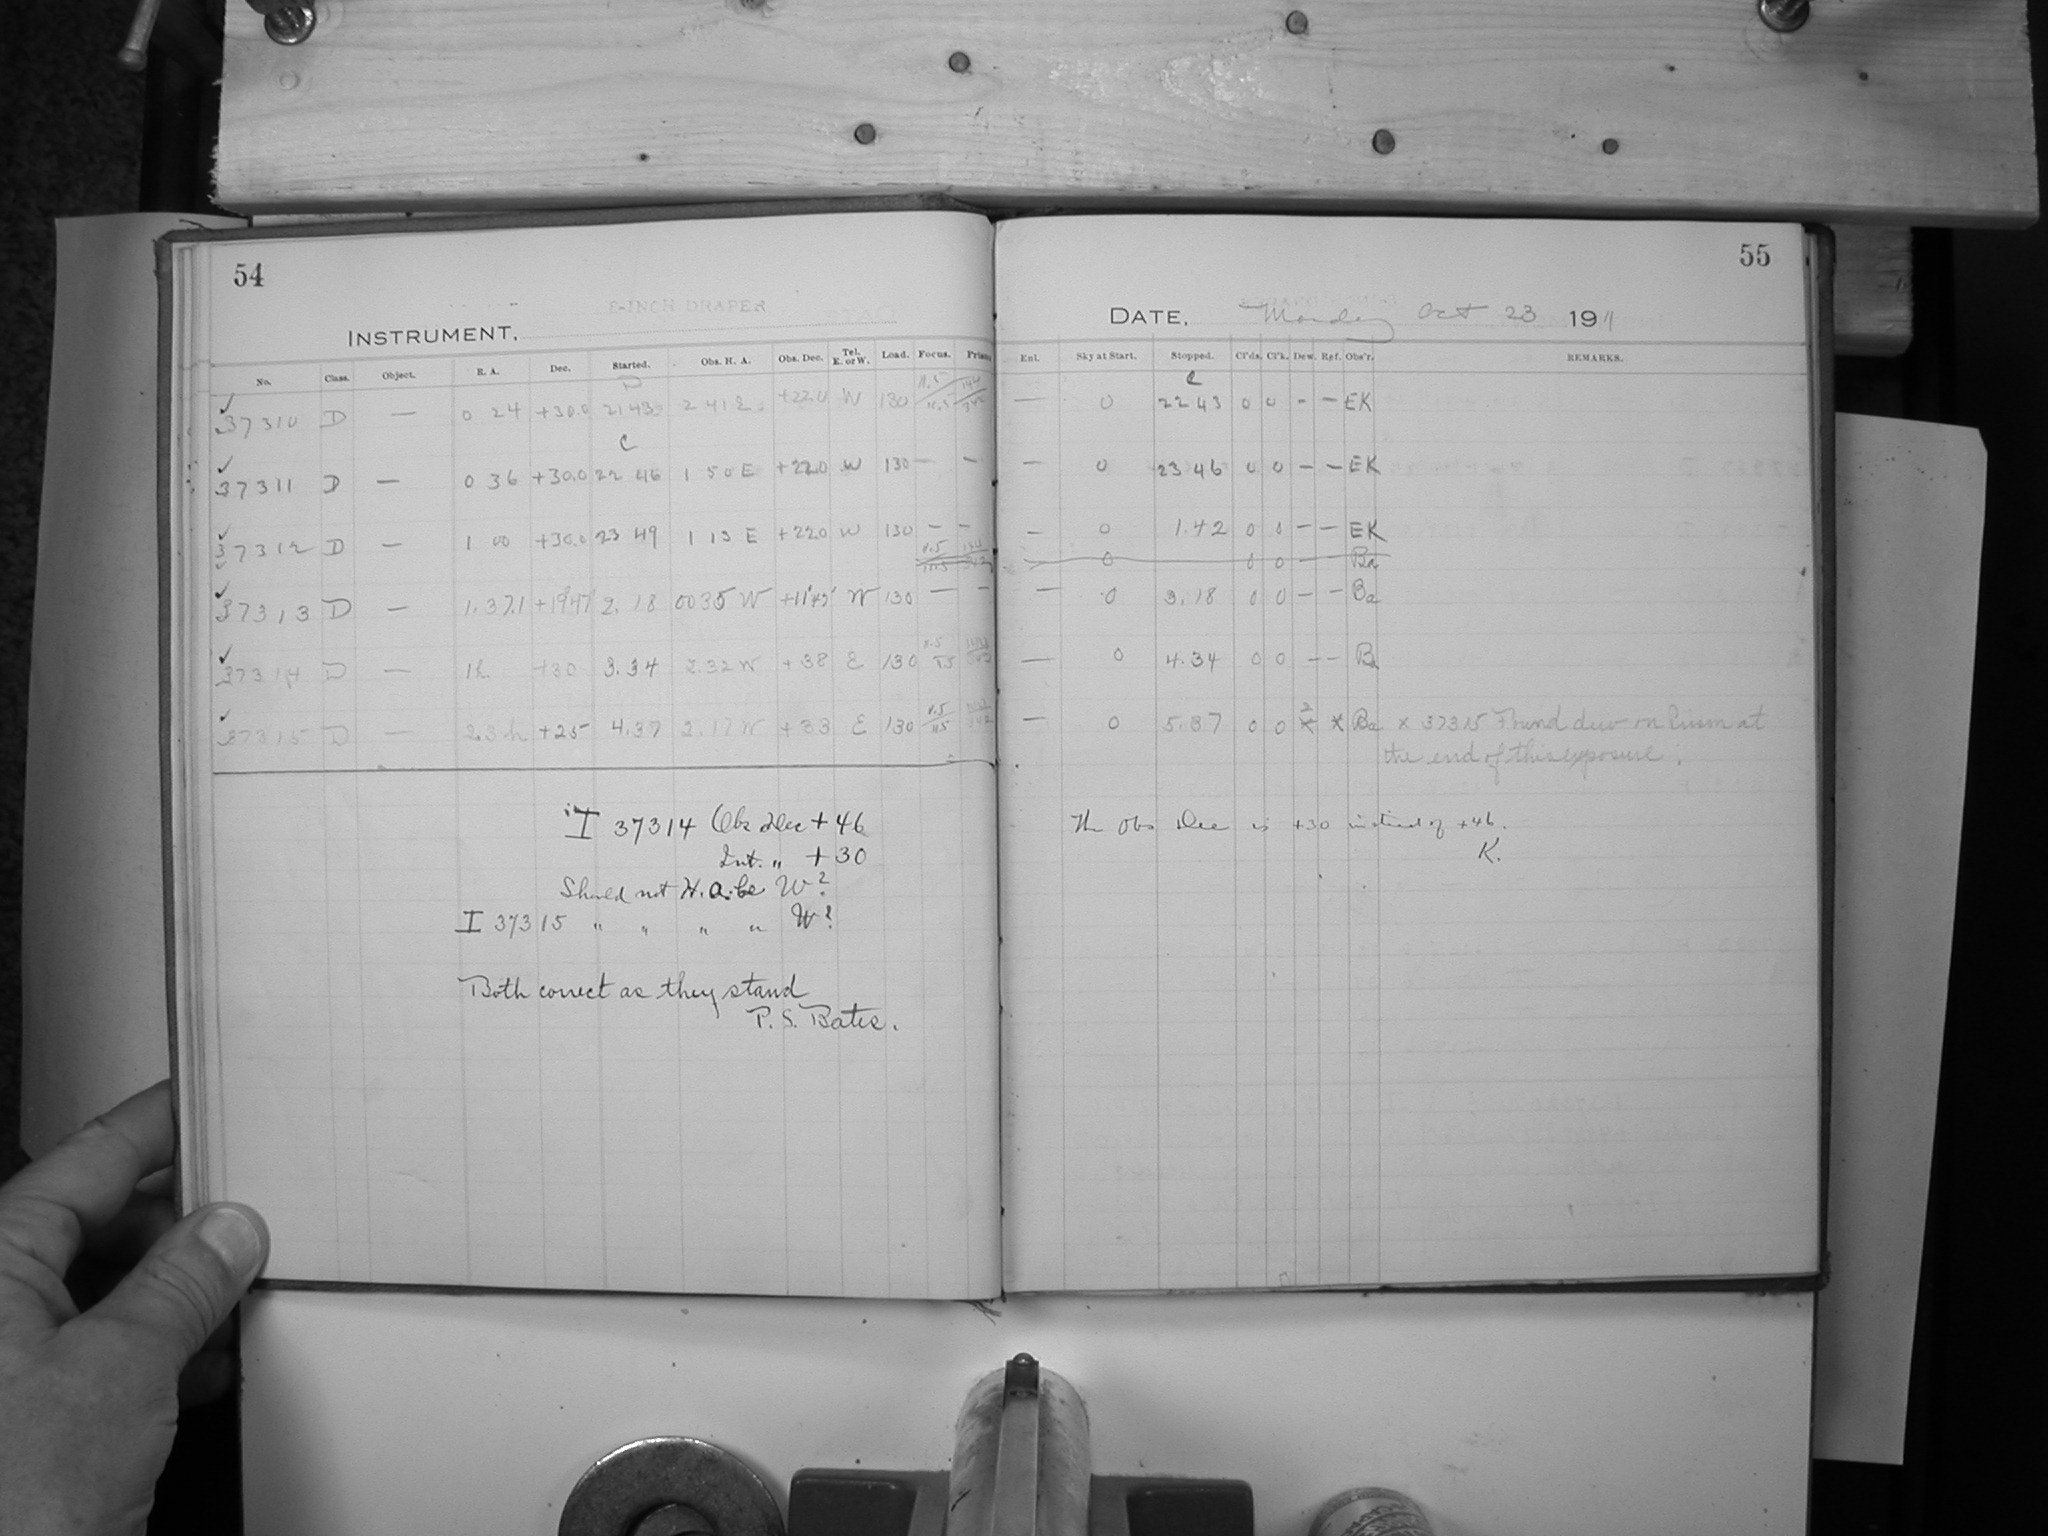 54
8-INCH DRAPER
INSTRUMENT,
No. Class. Object. R. A. Dec. Started. Obs. H. A. Obs. Dec. Tel. E. or W. Load. Focus. Prism
37310 D — 0 24 +30.0 2143 2 41 E +22.0 W 130
C
37311 D — 0 36 +30.0 22 46 1 50 E +22.0 W 130 — —
37312 D — 1 00 +30.0 23 49 1 13 E +22.0 W 130 — —
37313 D — 1.37.1 +19°47' 2. 18 0035 W +11°45' W 130 — —
37314 D — 1h +30 3.34 2.32 W +38 E 130
37315 D — 2.3h +25 4.37 2.17 W +33 E 130
I 37314 Obs Dec + 46
Int. " + 30
Should not H. A. be W?
I 37315 " " " " W?
Both correct as they stand
P. S. Bates.
55
DATE, Monday Oct 23 1911
Enl. Sky at Start. Stopped. Cl'ds. Cl'k. Dew. Ref. Obs'r. REMARKS.
C
— 0 22 43 0 0 - — EK
— 0 23 46 0 0 — — EK
— 0 1.42 0 0 — — EK
0 0 0 — Ba
— 0 3.18 0 0 — — Ba
— 0 4.34 0 0 — — Ba
— 0 5.37 0 0 x Ba x 37315 Found dew on Prism at
the end of this exposure.
The Obs Dec is +30 instead of +46.
K.